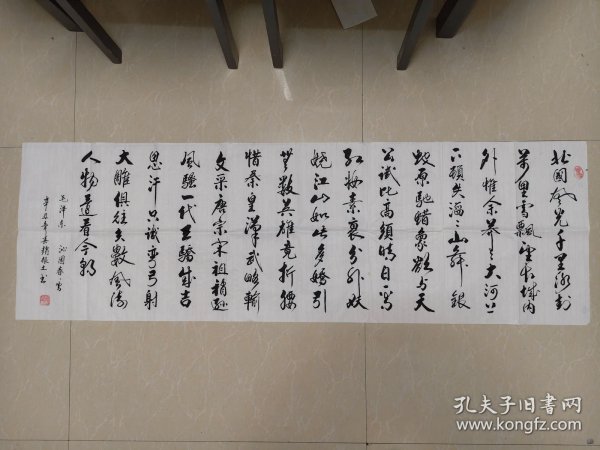 北國風光千里冰封
萬里雪飄望长城内
外惟余莽々大河上
下頓失滔々山舞銀
蛇原馳蜡象欲与天
公試比高須晴日看
红妆素裹分外妖
娆江山如此多娇引
無数英雄竞折腰
惜秦皇漢武略輸
文采唐宗宋祖稍遜
風騷一代天驕成吉
思汗只識弯弓射
大雕俱往矣數風流
人物還看今朝
毛泽东 沁园春雪
辛丑年 书
孔夫子旧书网
www.kongfz.com